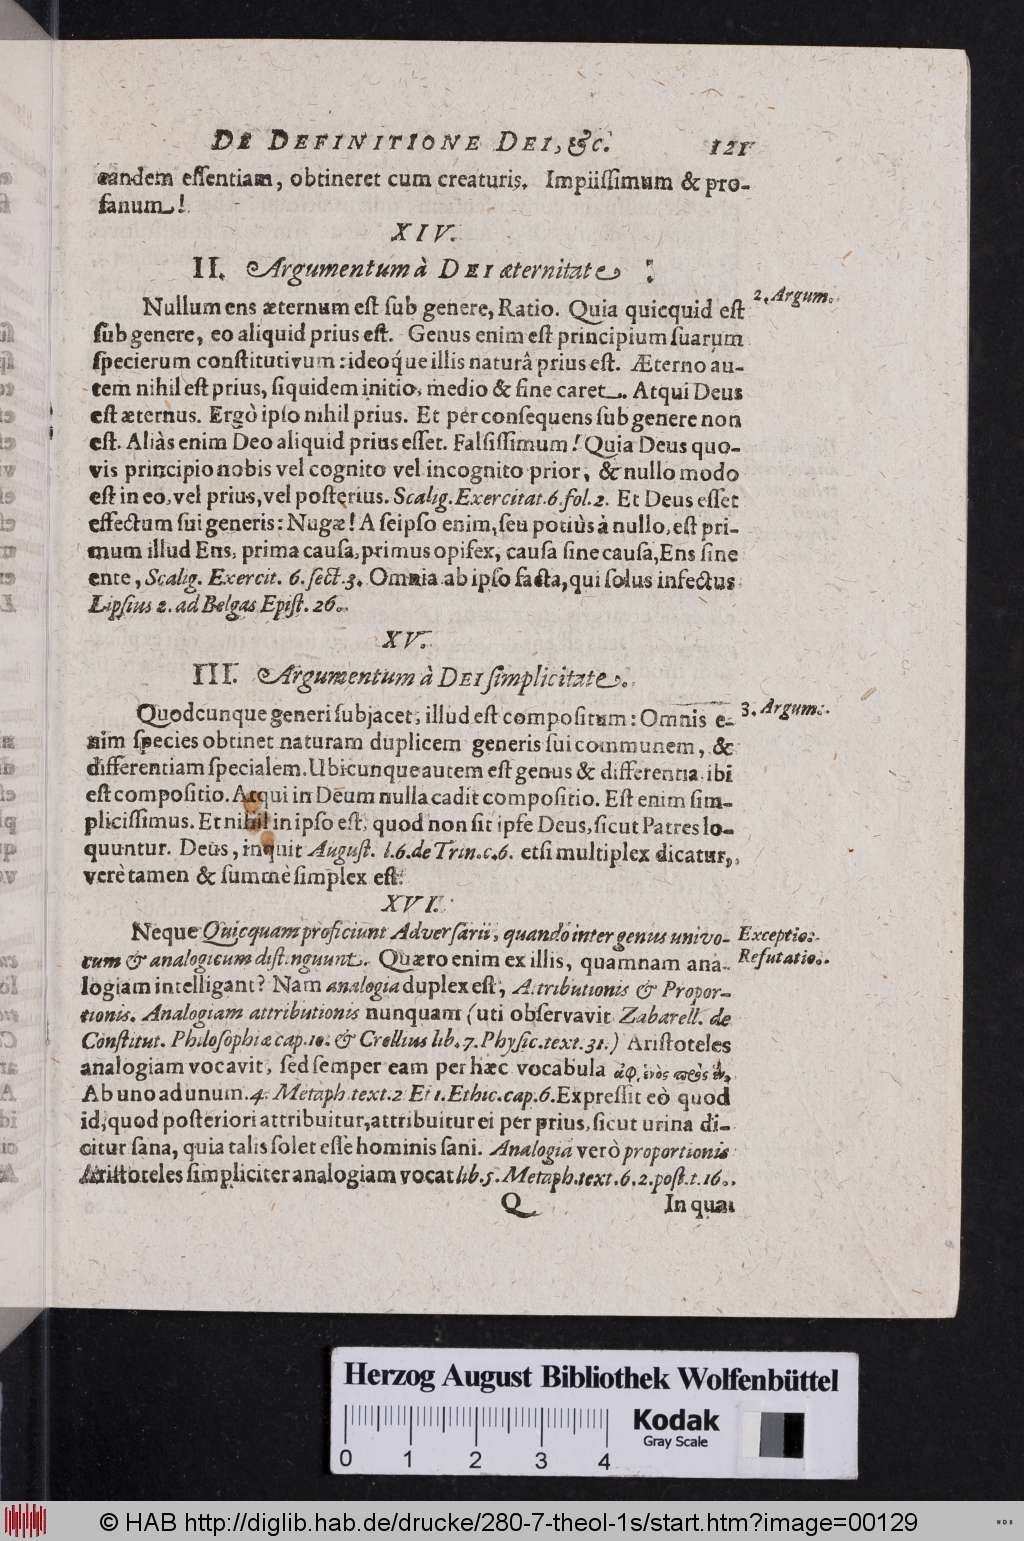 DE DEFINITIONE DEI, &c. 121
eandem essentiam, obtineret cum creaturis. Impiissimum & pro-
fanum!
XIV.
II. Argumentum à DEI æternitate:
Nullum ens æternum est sub genere, Ratio. Quia quicquid est
2. Argum.
sub genere, eo aliquid prius est. Genus enim est principium suarum
specierum constitutivum: ideoq́ue illis naturâ prius est. Æterno au-
tem nihil est prius, siquidem initio, medio & fine caret. Atqui Deus
est æternus. Ergò ipso nihil prius. Et per consequens sub genere non
est. Aliàs enim Deo aliquid prius esset. Falsissimum! Quia Deus quo-
vis principio nobis vel cognito vel incognito prior, & nullo modo
est in eo, vel prius, vel posterius. Scalig. Exercitat. 6. fol. 2. Et Deus esset
effectum sui generis: Nugæ! A seipso enim, seu potiùs à nullo, est pri-
mum illud Ens, prima causa, primus opifex, causa sine causa, Ens sine
ente, Scalig. Exercit. 6. sect. 3. Omnia ab ipso facta, qui solus infectus
Lipsius 2. ad Belgas Epist. 26.
XV.
III. Argumentum à DEI simplicitate.
Quodcunque generi subjacet, illud est compositum: Omnis e-
3. Argum.
nim species obtinet naturam duplicem generis sui communem, &
differentiam specialem. Ubicunque autem est genus & differentia ibi
est compositio. Atqui in Deum nulla cadit compositio. Est enim sim-
plicissimus. Et nihil in ipso est, quod non sit ipse Deus, sicut Patres lo-
quuntur. Deus, inquit August. l. 6. de Trin. c. 6. etsi multiplex dicatur,
verè tamen & summè simplex est.
XVI.
Neque Quicquam proficiunt Adversarii, quando inter genus univo-
Exceptio.
cum & analogicum distinguunt. Quæro enim ex illis, quamnam ana-
Refutatio.
logiam intelligant? Nam analogia duplex est, Attributionis & Propor-
tionis. Analogiam attributionis nunquam (uti observavit Zabarell. de
Constitut. Philosophiæ cap. 10. & Crellius lib. 7. Physic. text. 31.) Aristoteles
analogiam vocavit, sed semper eam per hæc vocabula ἀφ' ἑνὸς πρὸς ἓν,
Ab uno ad unum. 4. Metaph. text. 2 Et 1. Ethic. cap. 6. Expressit eò quod
id, quod posteriori attribuitur, attribuitur ei per prius, sicut urina di-
citur sana, quia talis solet esse hominis sani. Analogia verò proportionis
Aristoteles simpliciter analogiam vocat lib. 5. Metaph. text. 6. 2. post. t. 16.
Q In quam
Herzog August Bibliothek Wolfenbüttel
Kodak
Gray Scale
0 1 2 3 4
© HAB http://diglib.hab.de/drucke/280-7-theol-1s/start.htm?image=00129